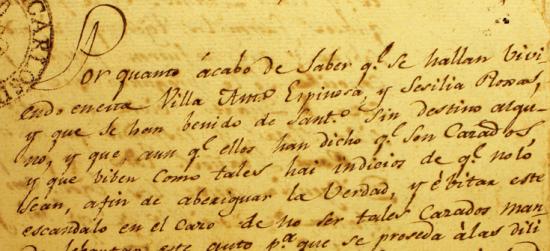 CARLOS
Por quanto ácabo de Saber q.e Se hallan Vivi
endo en esta Villa Ant.o Espinosa, y Sesilia Roxas,
y que Se han benido de Sant.o Sin destino algu
no, y que, aun q.e ellos han dicho q.e Son Casados
y que biben Como tales hai indicios de q.e no ló
Sean, a fin de aberiguar la Verdad, y ébitar este
escandálo en el Caso de no ser tales Casados man
este auto p.a que se preseda á las dili